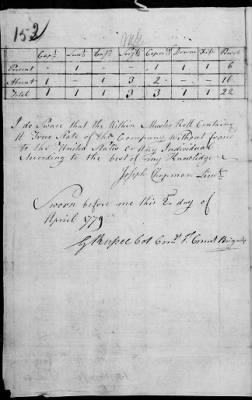 152
Capt Lieut Ens Serjt Corporl Drum Fife Privt
Present - 1 - - 1 1 1 6
Absent 1 - 1 3 2 - - 16
Total 1 1 1 3 3 1 1 22
I do Sware that the Within Muster Roll Containg
A True State of the Company Without fraud
to the United States or Any Individual
According to the best of my Knowledge
Joseph Chapman Lieut
Sworn before me this 2 day of
April 1779
G Russel Col Com Brigade